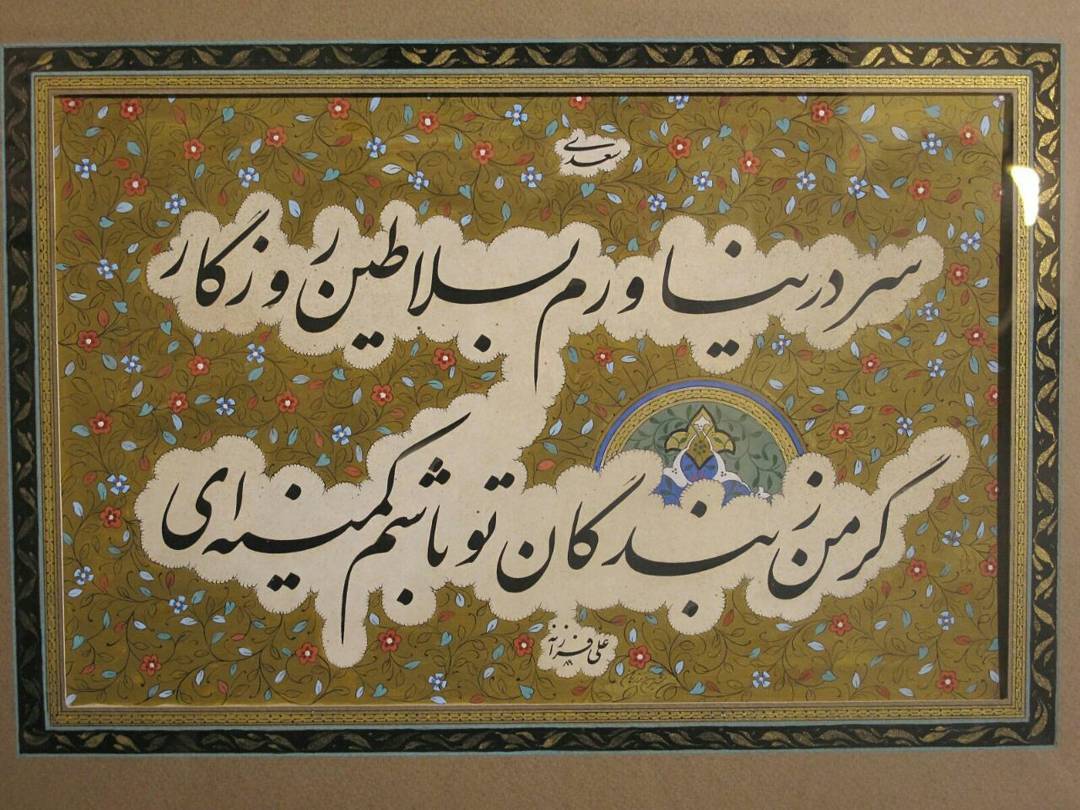 سعدی
سر در نیاورم بسلاطین روزگار
گر من ز بندگان تو باشم کمینه ای
علی فرزانه
۸۸